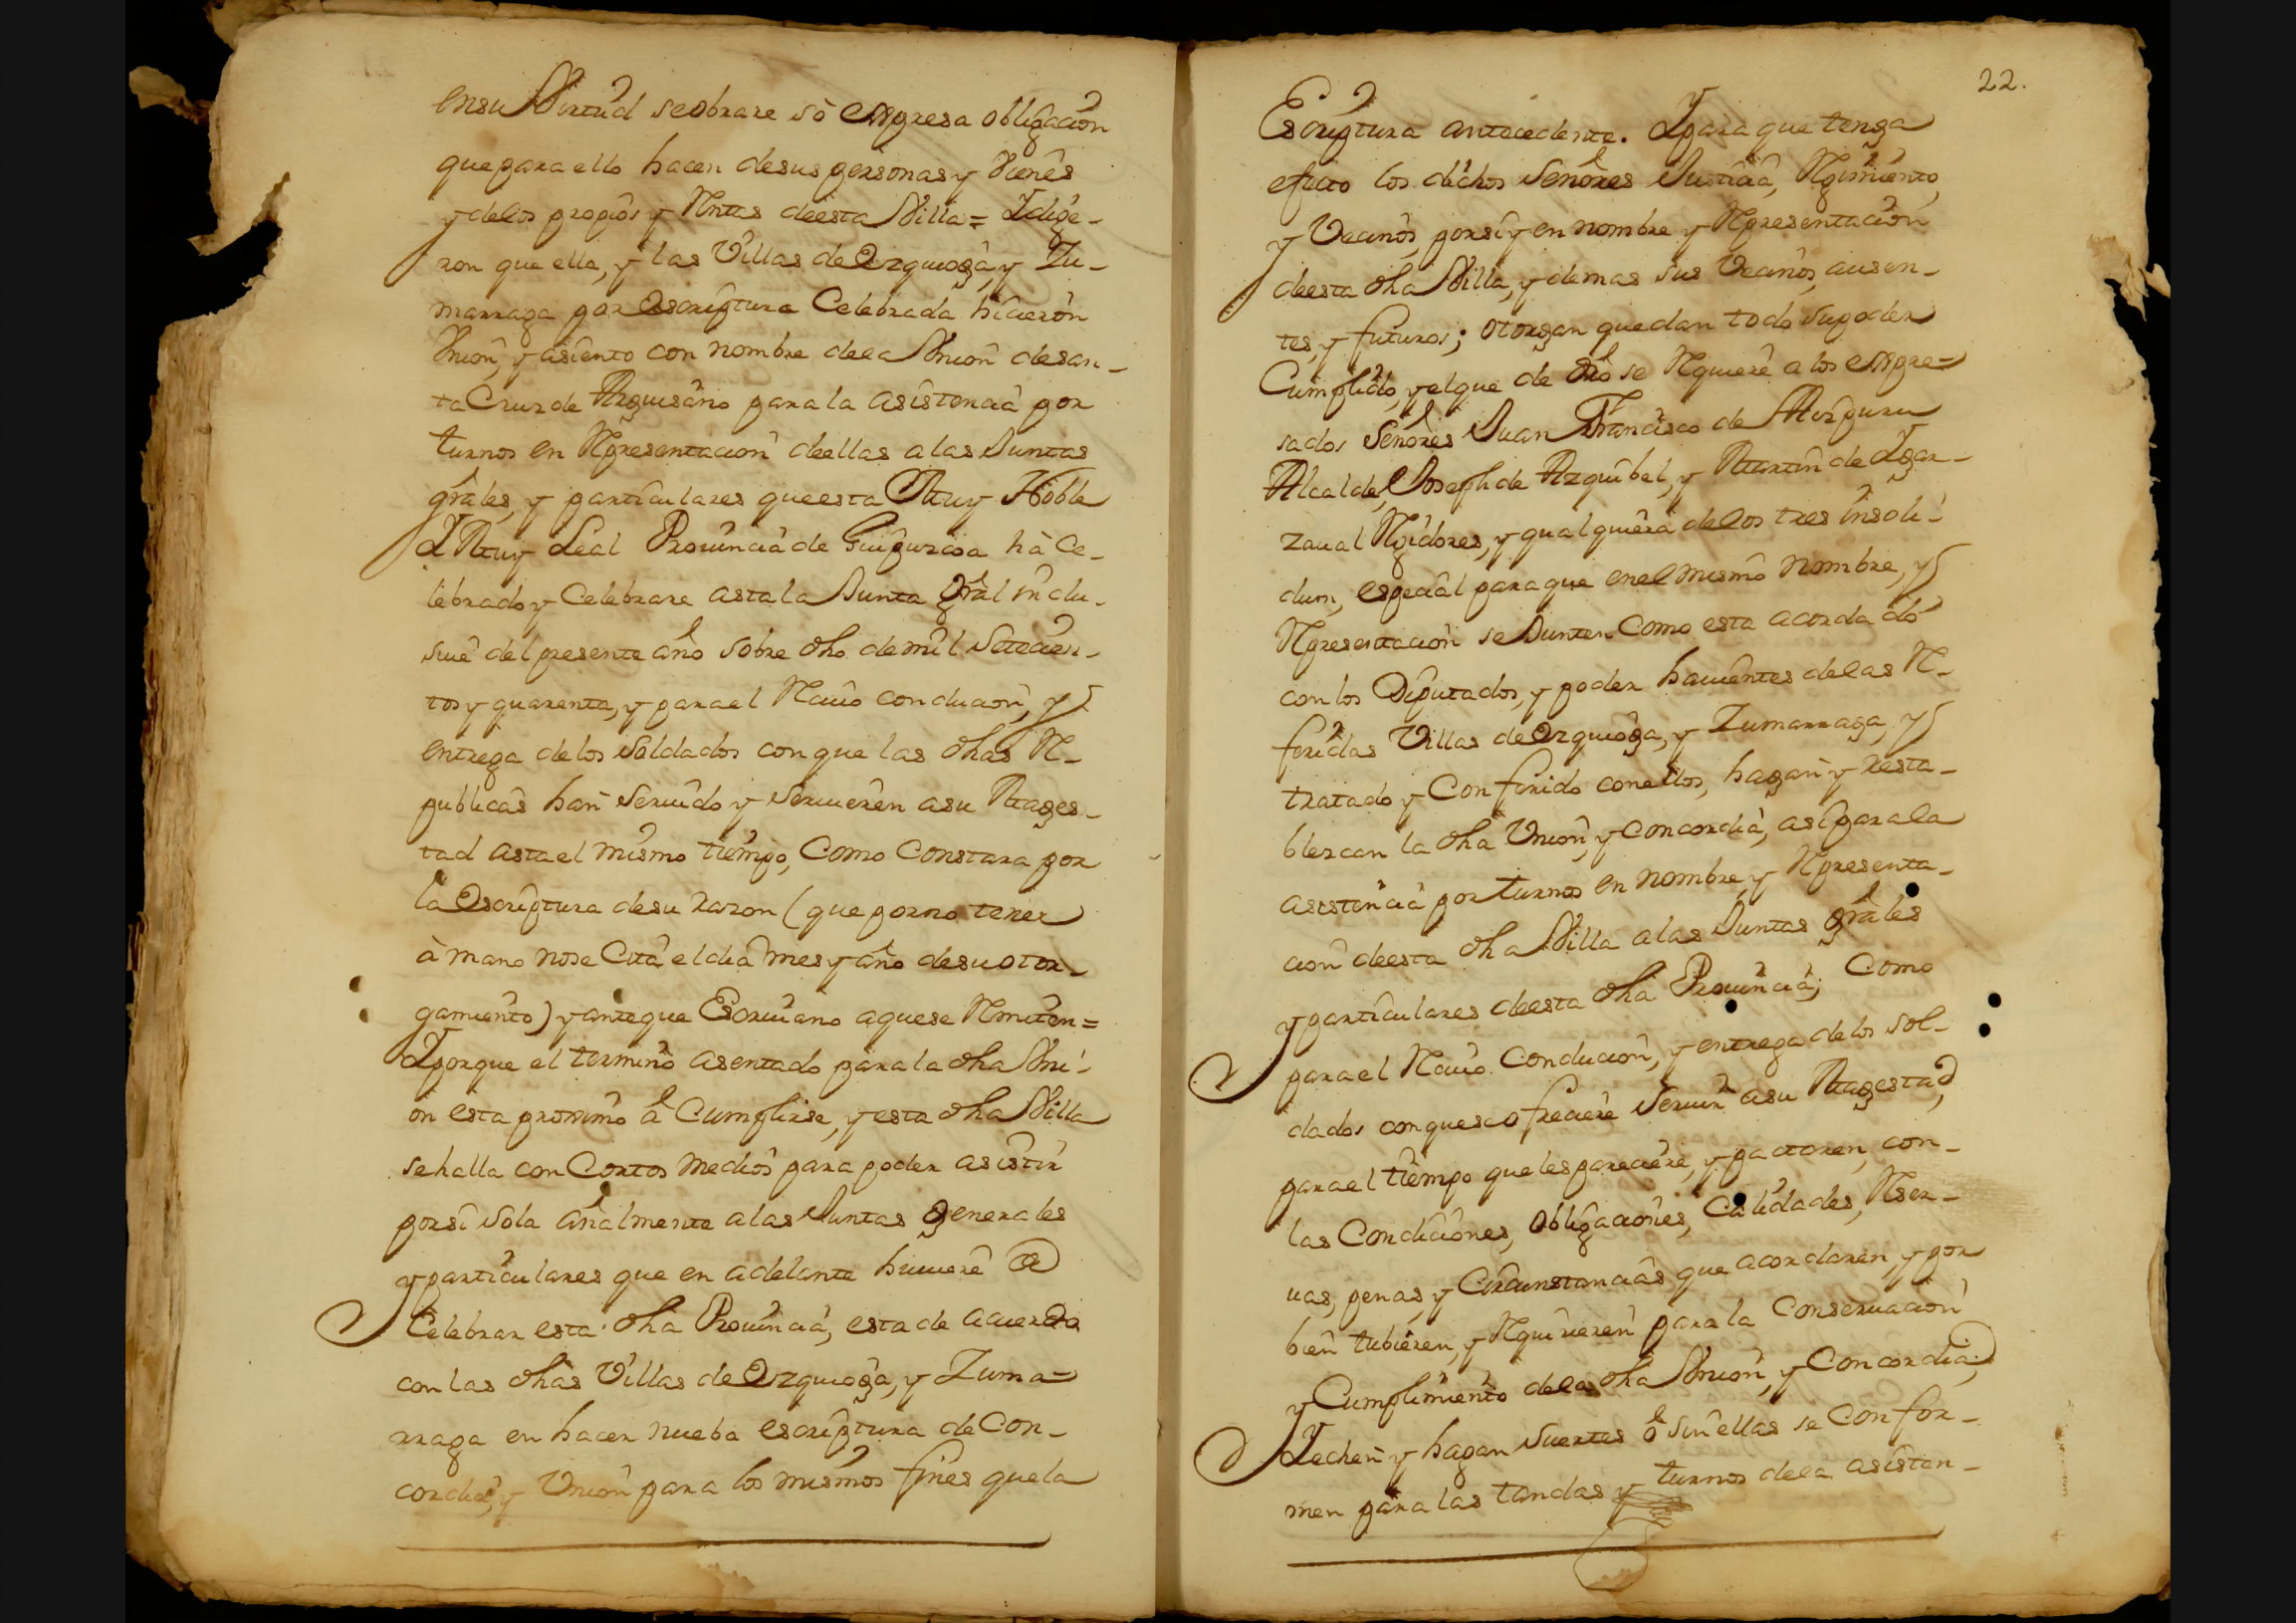 ensu Virtud seobrare só expresa obligacion
que para ello hacen desus personas y vienes
y delos propios y Rentas deesta Villa = Ydige-
ron que ella, y las Villas de Ezquioga, y Zu-
marraga por Escriptura Celebrada hicieron
Union, y asiento con nombre dela Vnion desan-
ta Cruz de Arguisano para la asistencia por
turnos en Representacion deellas alas Juntas
grâles, y particulares que esta Muy Noble
Y Muy Leal Prouincia de Guipuzcoa hà Ce-
lebrado y Celebrare asta la Junta grâl inclu-
siue del presente año sobre dho de mil Setecien-
tos y quarenta, y para el Nauio conducion, y
entrega de los Soldados con que las dhas Re-
publicas han Seruido y Siruieren asu Mages-
tad asta el mismo tiempo, Como Constara por
la Escriptura desu razon (que por no tener
à mano nose Cita el dia mes y año desu otor-
gamiento) y ante que Escriuano aquese Remiten =
Y porque el termino asentado para la dha Vni-
on esta proximo à Cumplirse, y esta dha Villa
se halla con Cortos medios para poder asistir
por si sola añalmente alas Juntas generales
y particulares que en adelante huuiere de
Celebrar esta dha Prouincia, esta de acuerdo
con las dhas Villas de Ezquioga, y Zuma=
rraga en hacer nueba escriptura de Con-
cordia, y Union para los mismos fines que la
22.
Escriptura antecedente. Y para que tenga
efecto los dichos Señores Justicia, Regimiento,
y Vecinos, por si y en nombre y Representacion
deesta dha Villa, y demas sus Vecinos, ausen-
tes, y futuros; otorgan que dan todo su poder
Cumplido, y el que de dro se Requiere a los expre=
sados Señores Juan Francisco de Aizpuru
Alcalde, Joseph de Azquibel, y Martin de Ygar-
zaual Regidores, y qualquiera delos tres insoli-
dum, especial para que en el mismo nombre, y
Representacion se Junten Como esta acordado
con los Diputados, y poder hauientes delas Re-
feridas Villas de Ezquioga, y Zumarraga, y
tratado y Conferido con ellos, hagan y resta-
blezcan la dha Union, y Concordia, asi para la
asistencia por turnos en nombre, y Representa-
cion deesta dha Villa alas Juntas grâles
y particulares deesta dha Prouincia; Como
para el Nauio Conducion, y entrega de los sol-
dados con que se ofreciere Seruir asu Magestad,
para el tiempo que les pareciere, y pactaren, con-
las Condiciones, obligaciones, Calidades, Reser-
uas, penas, y Circunstancias que acordaren, y por
bien tubieren, y Requirieren para la Conseruacion
y Cumplimiento dela dha Vnion, y Concordia;
Y echen y hagan Suertes ò sin ellas se Confor-
men para las tandas y turnos dela asisten-